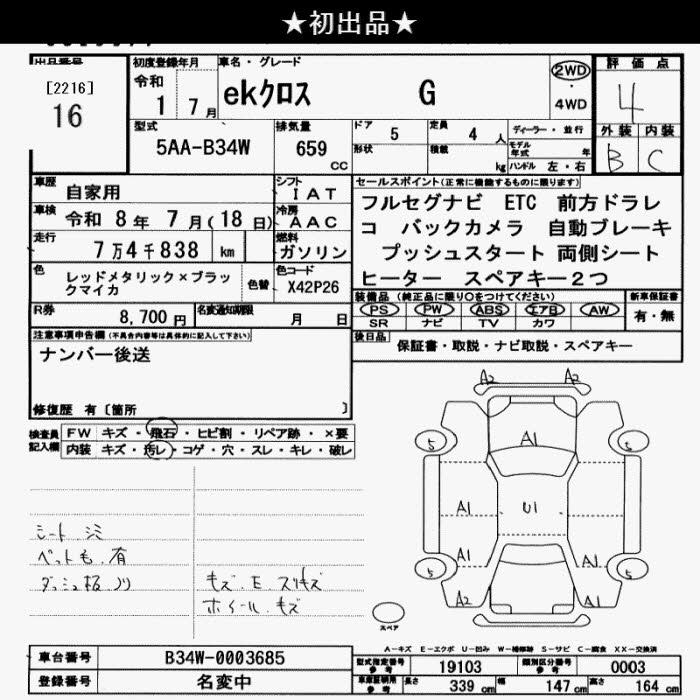 ★初出品★
出品番号
[2216]
16
初度登録年月
令和
1 7 月
車名・グレード
ekクロス G
2WD
・
4WD
評価点
4
外装 内装
B C
型式
5AA-B34W
排気量
659
cc
ドア 5
定員 4 人
ディーラー・並行
形状
積載 kg
モデル年式 年
ハンドル 左・右
車歴
自家用
シフト
IAT
車検
令和 8 年 7 月(18日)
冷房
AAC
走行
7万4千838 km
燃料
ガソリン
色
レッドメタリック×ブラックマイカ
色替
色コード
X42P26
R券
8,700 円
名変通知期限
月 日
セールスポイント(正常に機能するものに限ります)
フルセグナビ ETC 前方ドラレ
コ バックカメラ 自動ブレーキ
プッシュスタート 両側シート
ヒーター スペアキー2つ
装備品 (純正品に限り○をつけてください)
PS PW ABS エアB AW
SR ナビ TV カワ
新車保証書
有・無
後日品
保証書・取説・ナビ取説・スペアキー
注意事項申告欄(不具合内容等は具体的に記入して下さい)
ナンバー後送
修復歴 有〔箇所 〕
検査員
記入欄
FW キズ・飛石・ヒビ割・リペア跡・×要
内装 キズ・汚レ・コゲ・穴・スレ・キレ・破レ
シート シミ
ペット毛 有
ダッシュ板 ノリ
キズ. E. スリキズ
ホイール キズ
A2 A2
5 A1 5
A1 U1
A1 A1
5 5
A2 A1
スペア
A-キズ E-エクボ U-凹み W-補修跡 S-サビ C-腐食 XX-交換済
車台番号
B34W-0003685
登録番号
名変中
型式指定番号
参考
19103
類別区分番号
参考
0003
車庫証明用
参考
長さ 339 cm
幅 147 cm
高さ 164 cm